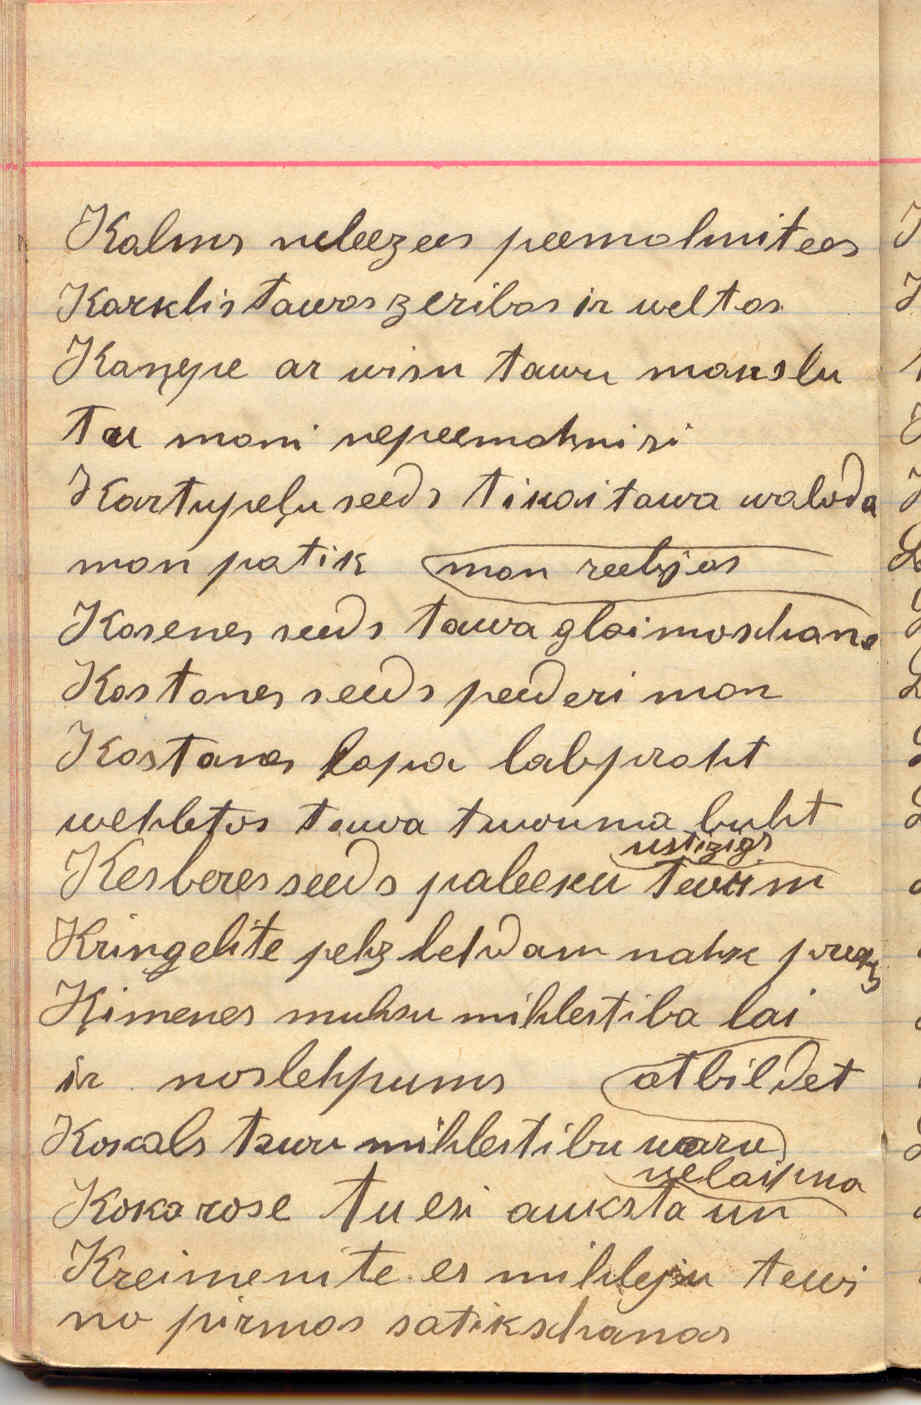 Kalms neleezees peemahnitees
Karklis tawas zeribas ir weltas
Kaņepe ar wisu tawu mahkslu
tu mani nepeemahnisi
Kartupeļu seeds tikai tawa waloda
man patik man reebjas
Kasenes seeds tawa glaimoschana
Kastanes seeds peederi man
Kastanes lapa labpraht
wehletos tawa tuwuma buht
ustizigs
Kesberes seeds paleeku tewim
Kringelite pehz behdam nahk preeks
Ķimenes muhsu mihlestiba lai
ir noslehpums atbildet
Kokals tawu mihlestibu waru
nelaipna
Koka rose tu esi auksta un
Kreimenite es mihleju tewi
no pirmas satikschanas